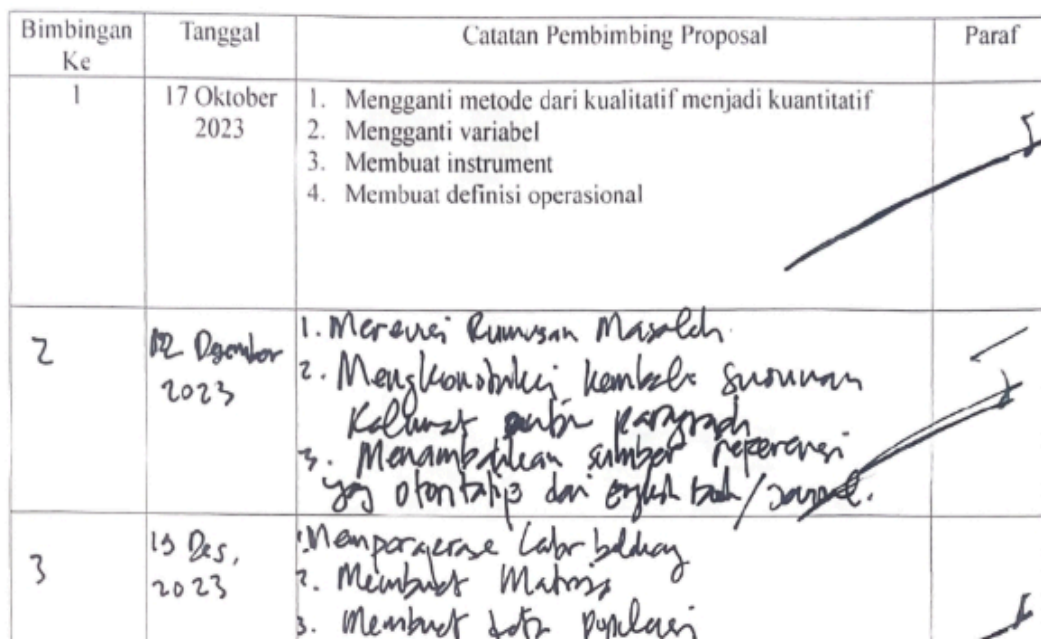 Bimbingan Ke
Tanggal
Catatan Pembimbing Proposal
Paraf
1
17 Oktober 2023
1. Mengganti metode dari kualitatif menjadi kuantitatif
2. Mengganti variabel
3. Membuat instrument
4. Membuat definisi operasional
2
Desember
2023
1. Merevisi Rumusan Masalah
2. Mengkonstruksi kembali susunan
kalimat antar paragraph
3. Menambahkan sumber referensi
yg otoritatif dari english book/journal.
3
Des,
2023
latar belakang
2. Membuat Matrix
3. Membuat data populasi